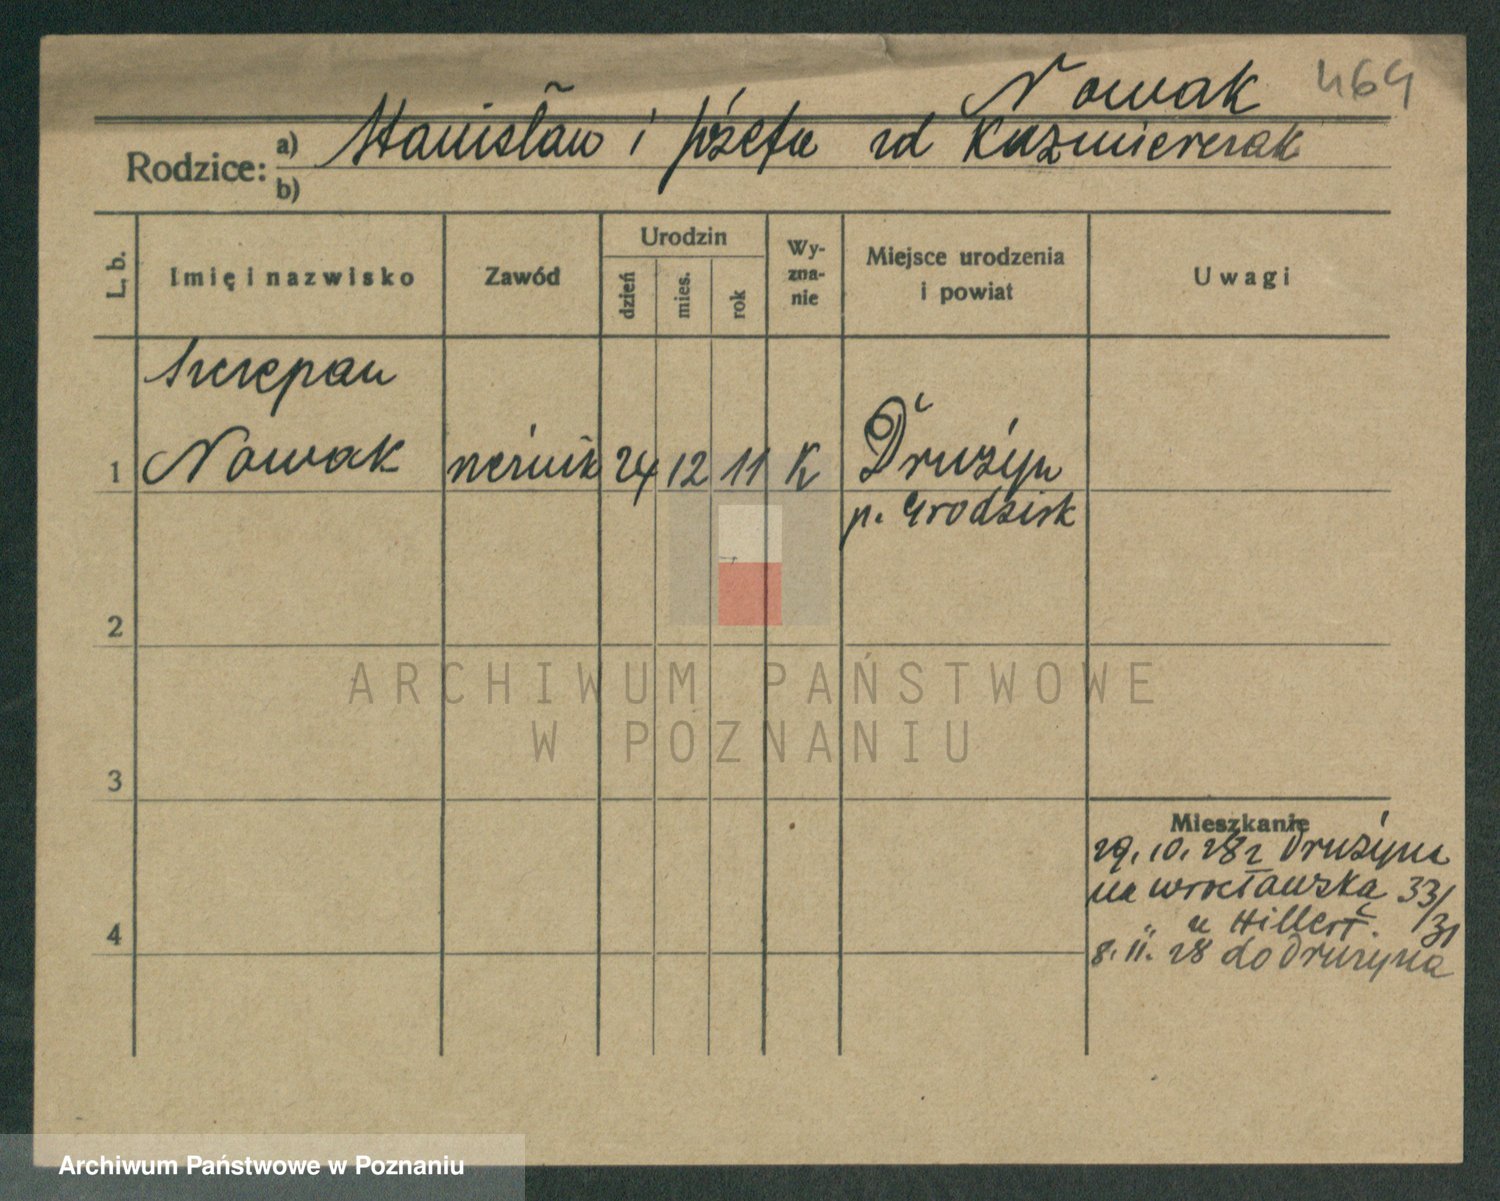 Nowak 464
Rodzice: a) Stanisław i Józefa zd Kaźmierczak
b)
L. b. Imię i nazwisko Zawód Urodzin dzień mies. rok Wy-zna-nie Miejsce urodzenia i powiat Uwagi
Szczepan
1 Nowak 24 12 11 K Drużyn
p. Grodzisk
2
ARCHIWUM PAŃSTWOWE
W POZNANIU
3
Mieszkanie
29. 10. 28 z Drużyna
na Wrocławska 33/31
" u Hillert.
4
8. 11. 28 do Drużyna
Archiwum Państwowe w Poznaniu